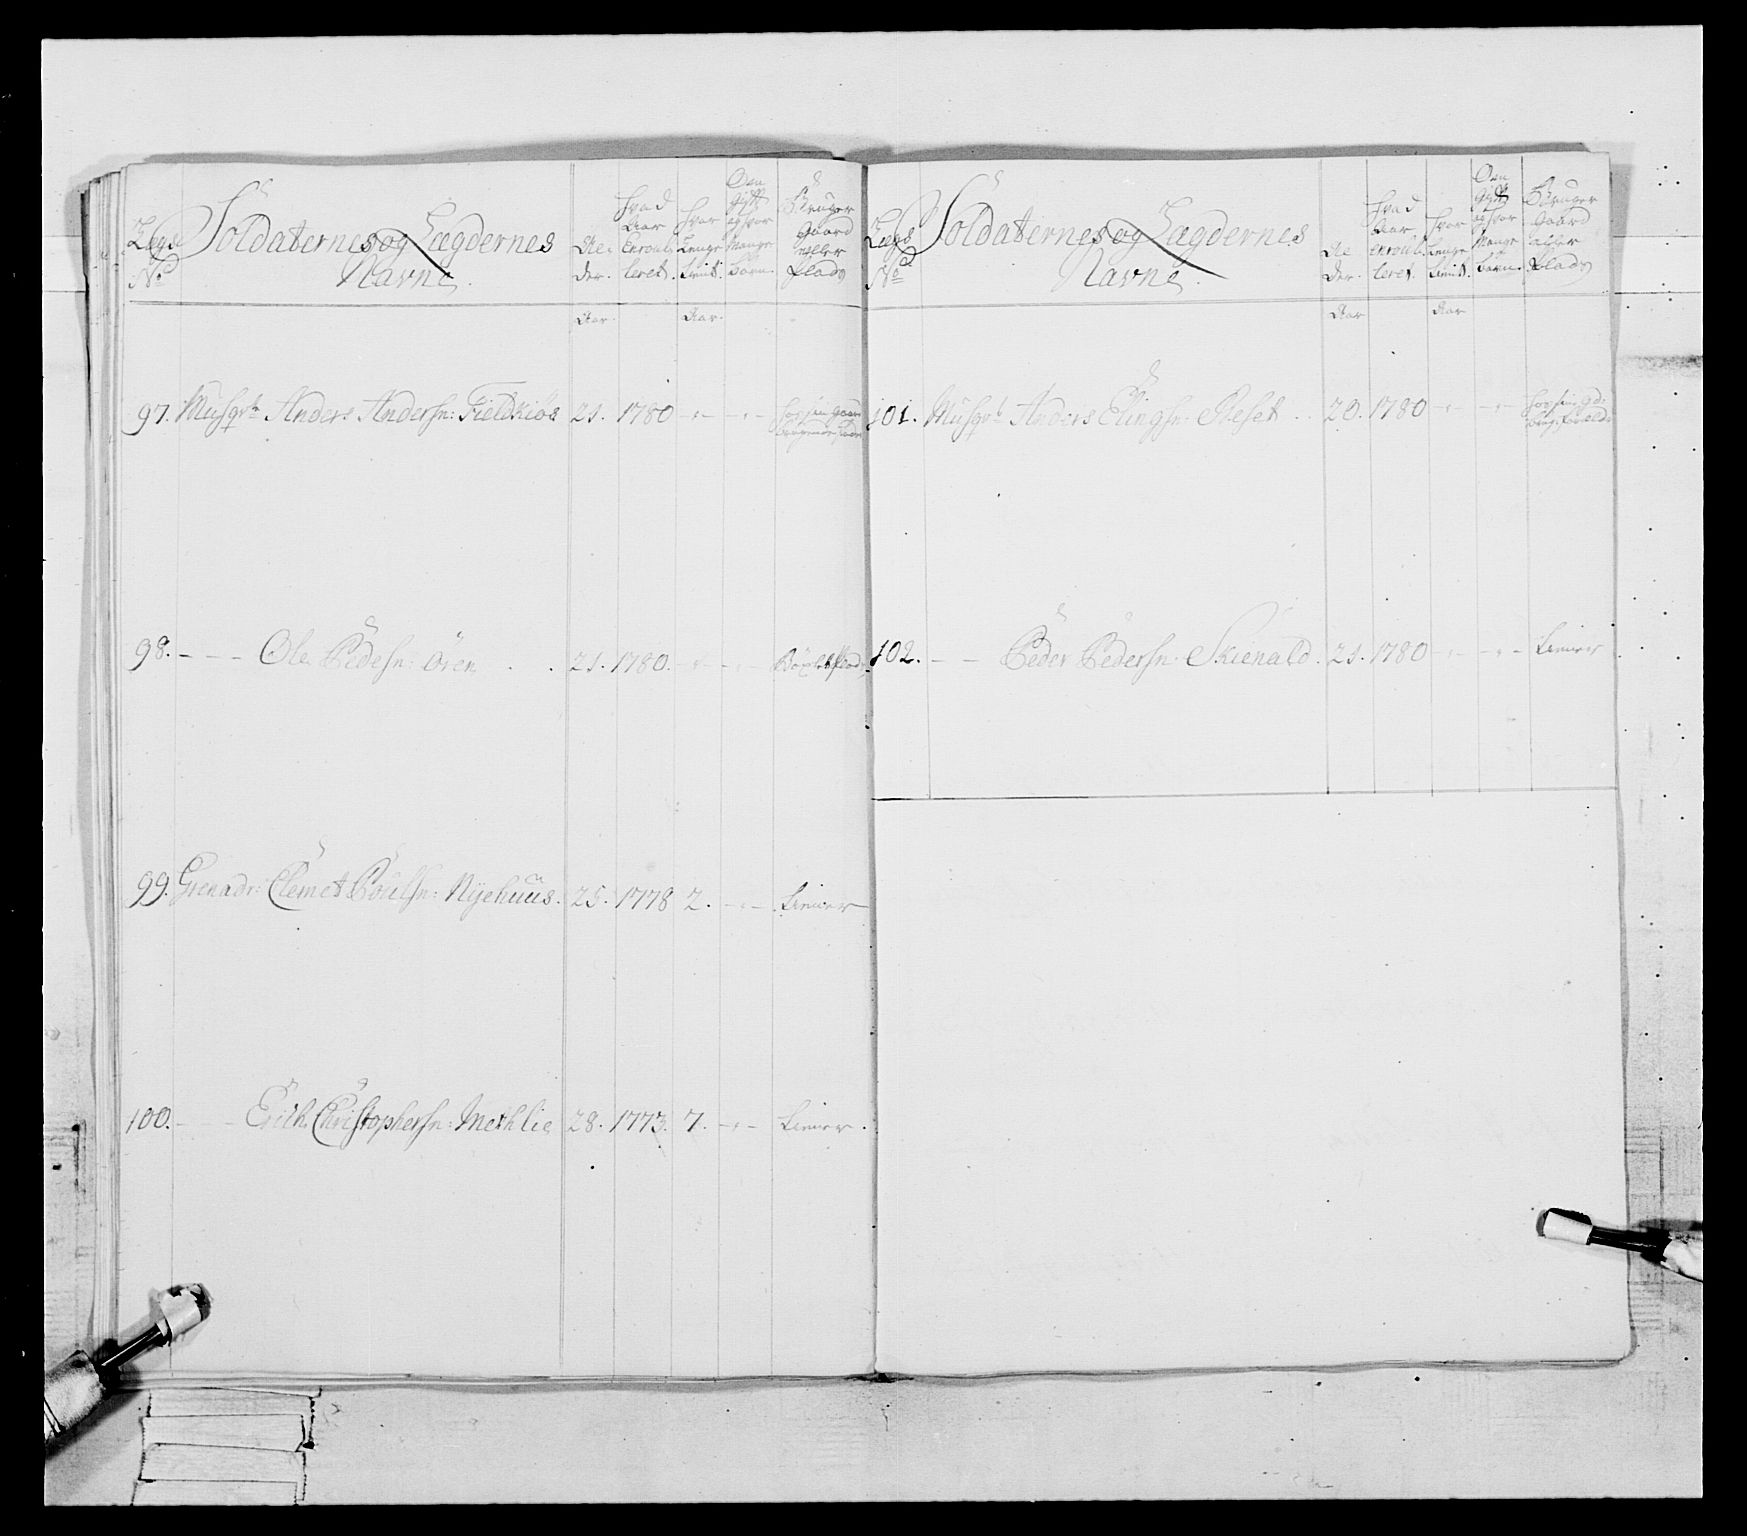 Lægs Soldaternes og Lægdernes
No Navne
Al=
der.
Hvad
Aar
Enroul=
leret.
Hvor
Lenge
tient.
Om
gift
og hvor
Mange
Børn.
Bruger
Gaard
eller
Plads
Aar. Aar.
97. Musqvtr Anders Andersn: Fieldkios 21. 1780 -"- -"-
98. - - - Ole Pedesn: Ören . . 21. 1780. -"- -"-
99. Grenadr: Clemet Poulsn: Nyehuus. 25. 1778 2. -"- tiener
100. - - - Erich Christophersn: Methlie 28. 1773. 7. -"- tiener.
Lægs Soldaternes og Lægdernes
No Navne.
Al
der.
Hvad
Aar
Enroul.
leret.
Hvor
Lenge
tient.
Om
gift
og hvor
Mange
Børn.
Bruger
Gaard
eller
Plads
Aar Aar
101. Musqvt Anders Elingsn: Reset . . 20. 1780 -"- -"-
102. - - Peder Pedersn: Skienald. 21. 1780 -"- -"- tiener